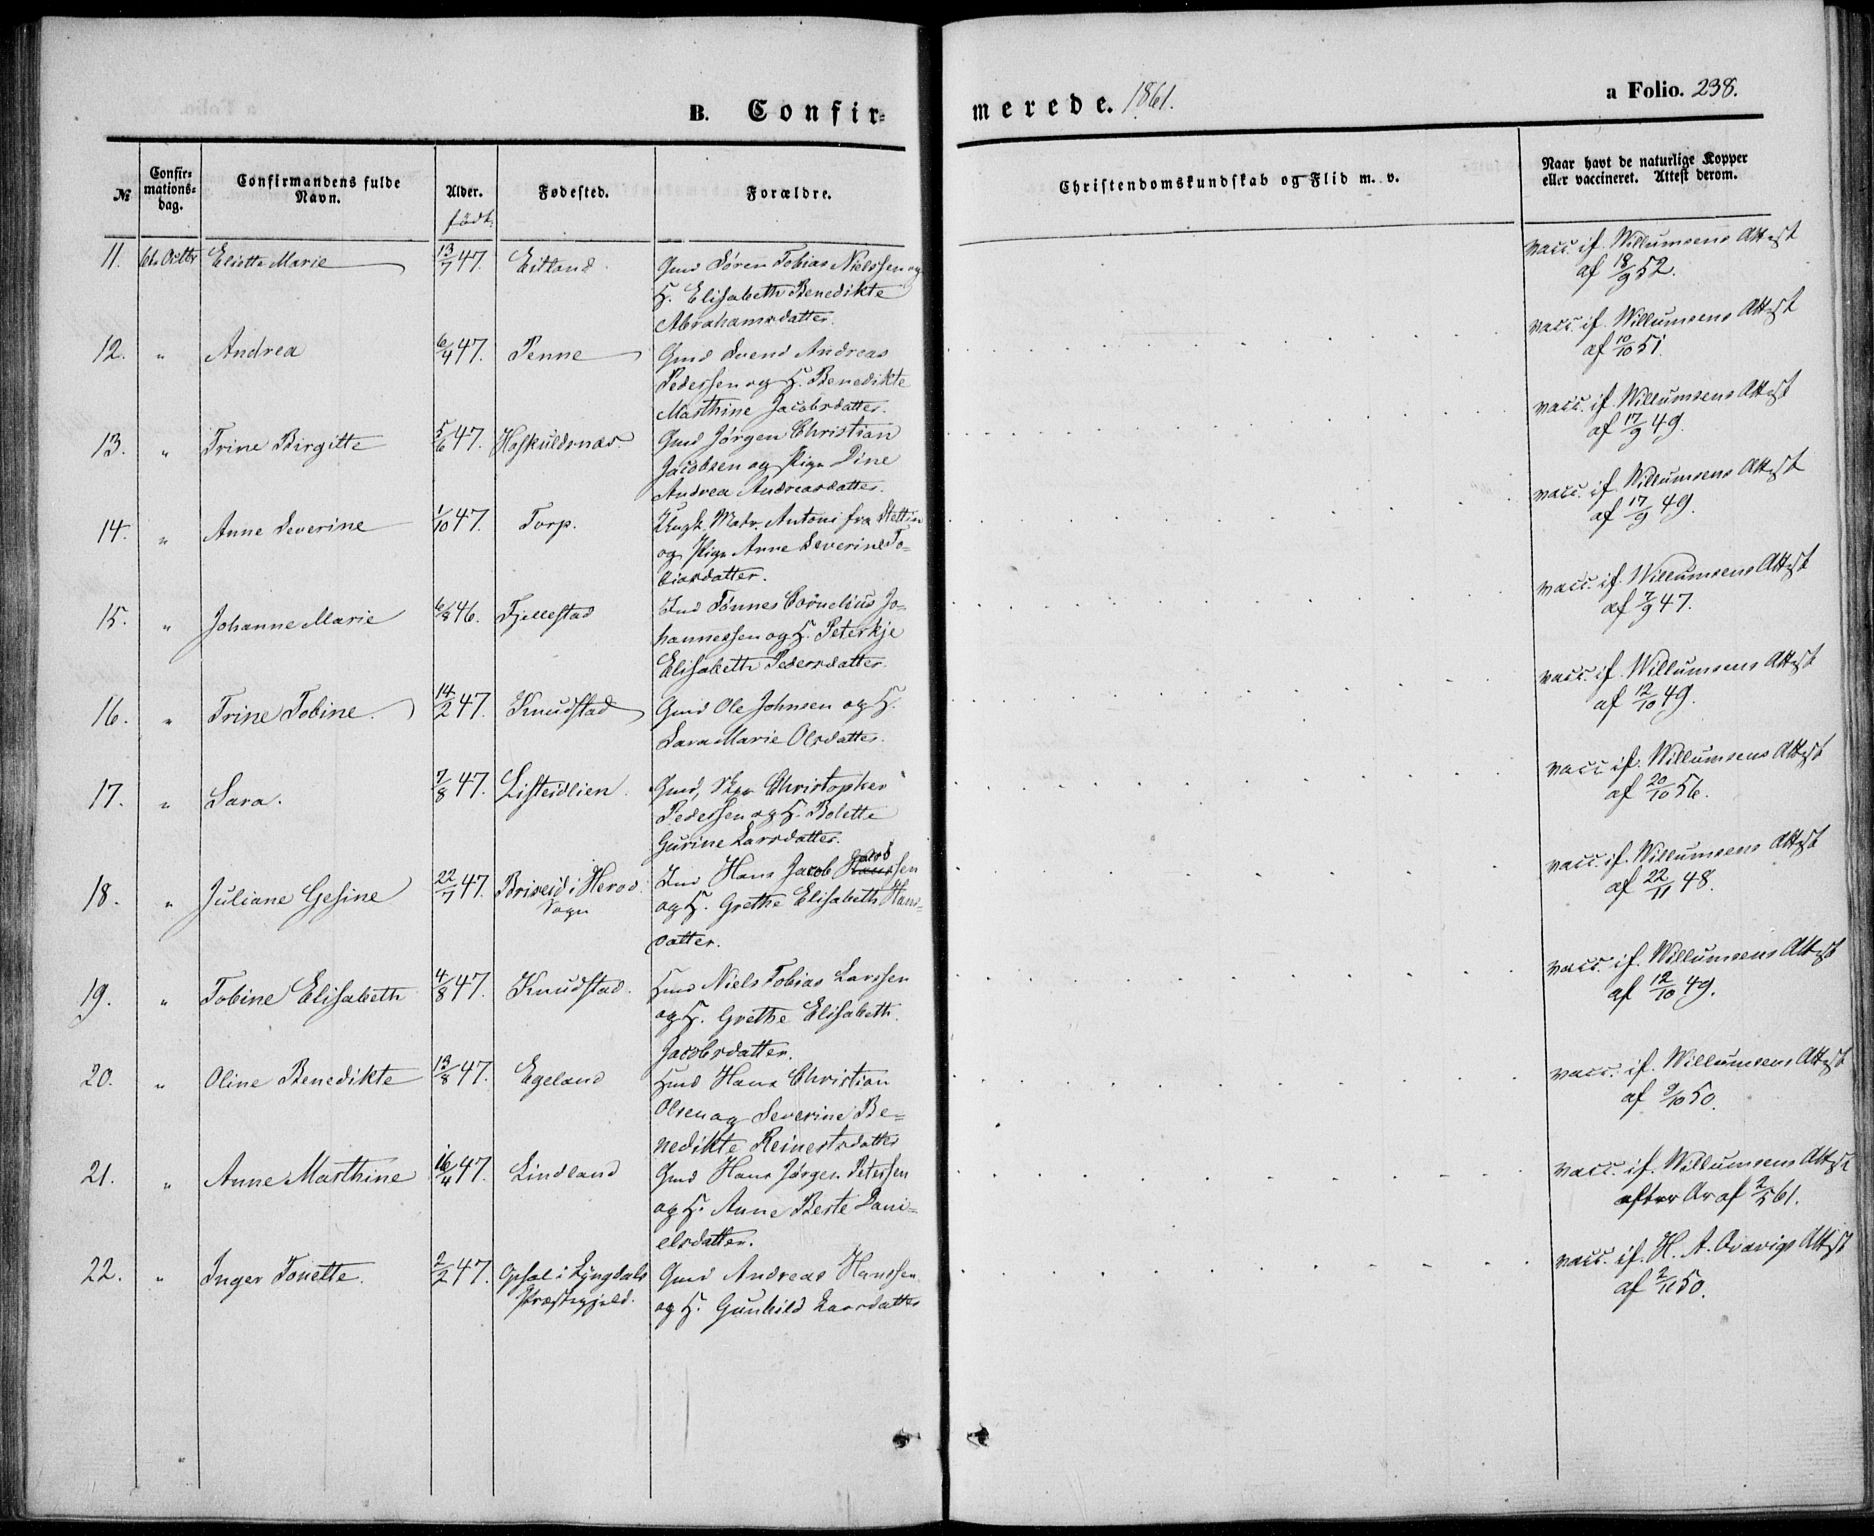 B. Confir-
merede. 1861.
a Folio. 238.
№
Confir-
mations-
dag.
Confirmandens fulde
Navn.
Alder.
født.
Fødested.
Forældre.
Christendomskundskab og Flid m. v.
Naar havt de naturlige Kopper
eller vaccineret. Attest derom.
11. 6te Octbr Eliotte Marie 13/7 47. Eitland. Gmd Søren Tobias Nielssen og
H. Elisabeth Benedikte
Abrahamsdatter.
vacc. if. Willumsens Attest
af 18/9 52.
12. " Andrea 6/4 47. Penne Gmd Svend Andreas
Pederssen og H. Benedikte
Marthine Jacobsdatter.
vacc. if. Willumsens Attest
af 10/10 51.
13. " Trine Birgitte 5/6 47. Hofkuldsnæs. Gmd Jørgen Christian
Jacobsen og Pige Dine
Andrea Andreasdatter.
vacc. if. Willumsens Attest
af 17/9 49.
14. " Anne Severine 1/10 47. Torp. Ungk. Matr. Antoni fra Stettin
og Pige Anne Severine To-
biasdatter.
vacc. if. Willumsens Attest
af 17/9 49.
15. " Johanne Marie 46. Fjellestad Ind Tønnes Cornelius Jo-
hannessen og H. Peterkje
Elisabeth Pedersdatter.
vacc. if. Willumsens Attest
af 7/9 47.
16. " Trine Tobine. 14/2 47. Knudstad Gmd Ole Johnsen og H.
Sara Marie Olsdatter.
vacc. if. Willumsens Attest
af 12/10 49.
17. " Sara. 7/8 47. Listeidlien. Gmd, Christopher
Pederssen og H. Bolette
Gurine Larsdatter.
vacc if. Willumsens Attest
af 20/10 56.
18. " Juliane Gesine 22/7 47. Briseid i Herad Ind Hans Jacob Jacobssen
Sogn og H. Grethe Elisabeth Hans-
datter.
vacc. if. Willumsens Attest
af 22/11 48.
19. " Tobine Elisabeth 4/8 47. Knudstad. Hmd Niels Tobias Larssen
og H. Grethe Elisabeth
Jacobsdatter.
vacc. if. Willumsens Attest
af 12/10 49.
20. " Oline Benedikte 13/8 47. Egeland Hmd Hans Christian
Olsen og Severine Be-
nedikte Reinertsdatter
vacc. if. Willumsens Attest
af 9/10 50.
21. " Anne Marthine 16/4 47. Lindland Gmd Hans Jørgen Peterssen
og H. Anne Berte Dani-
elsdatter.
vacc. if. Willumsens Attest
af 2/5 61.
22. " Inger Tonette. 2/2 47. Opsal i Lyngdals Gmd Andreas Hanssen
Præstegjeld. og H. Gunhild Larsdatter
vacc. if. H. A. Attest
af 2/11 50.